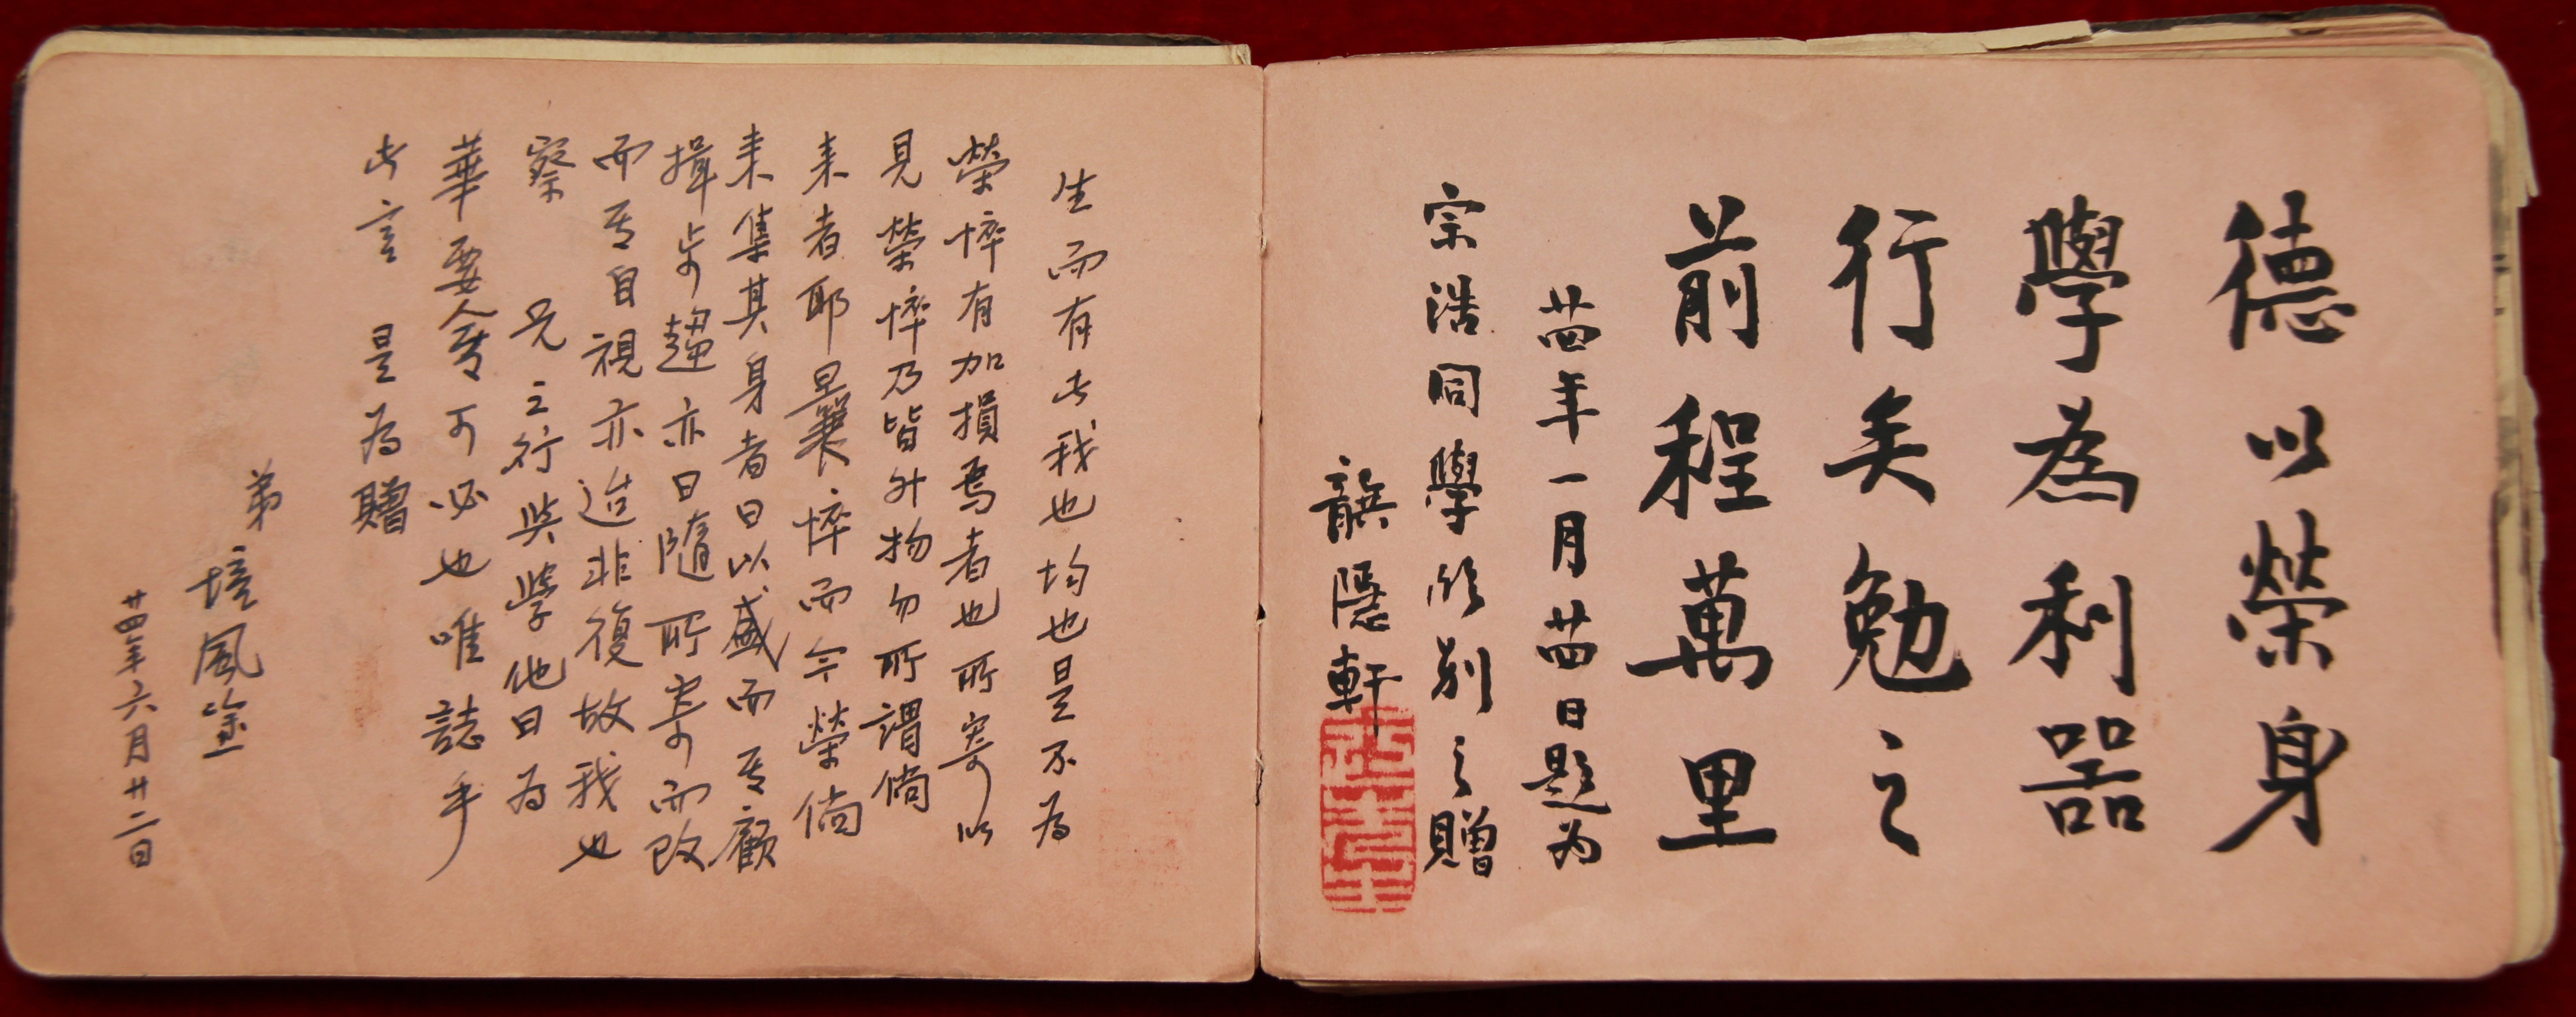 德以榮身
學為利器
行矣勉之
前程萬里
廿四年一月廿四日題為
宗浩同學臨別之贈
隱軒
生而有此我也均也是不為
榮悴有加損焉者也所寄以
見榮悴乃皆外物勿所謂倘
来者耶曩悴而今榮倘
来集其身者日以盛而顧
揖步趨亦日隨所寄而改
而自視亦迨非復故我也
察 兄之行與學他日為
華要人可必也唯誌乎
此言 是為贈
弟 培風
廿四年六月廿二日